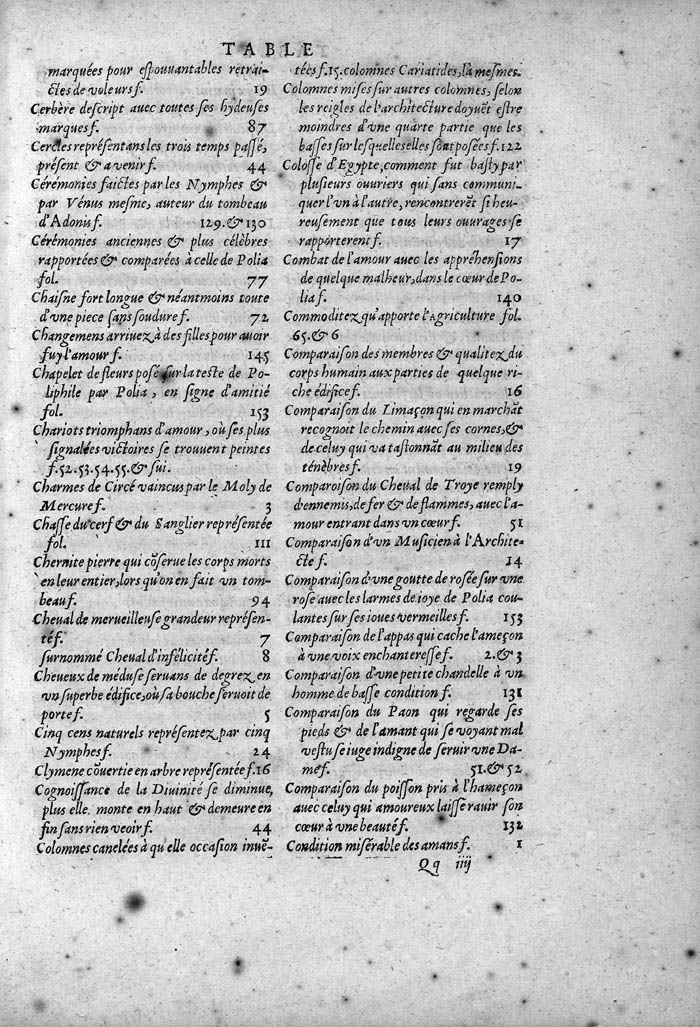 TABLE
marquées pour espouuantables retrai-
ctes de voleurs f. 19
Cerbère descript auec toutes ses hydeuses
marques f. 87
Cercles représentans les trois temps passé,
présent & a venir f. 44
Cérémonies faictes par les Nymphes &
par Vénus mesme, autour du tombeau
d'Adonis f. 129. & 130
Cérémonies anciennes & plus célèbres
rapportées & comparées à celle de Polia
fol. 77
Chaisne fort longue & néantmoins toute
d'vne piece sans soudure f. 72
Changemens arriuez à des filles pour auoir
fuy l'amour f. 145
Chapelet de fleurs posé sur la teste de Po-
liphile par Polia, en signe d'amitié
fol. 153
Chariots triomphans d'amour, où ses plus
signalées victoires se trouuent peintes
f. 52. 53. 54. 55. & sui.
Charmes de Circé vaincus par le Moly de
Mercure f. 3
Chasse du cerf & du Sanglier représentée
fol. 111
Chernite pierre qui cōserue les corps morts
en leur entier, lors qu'on en fait vn tom-
beau f. 94
Cheual de merueilleuse grandeur représen-
té f. 7
surnommé Cheual d'infélicité f. 8
Cheueux de méduse seruans de degrez en
vn superbe édifice, où sa bouche seruoit de
porte f. 5
Cinq cens naturels représentez par cinq
Nymphes f. 24
Clymene cōuertie en arbre représentée f. 16
Cognoissance de la Diuinité se diminue,
plus elle monte en haut & demeure en
fin sans rien veoir f. 44
Colomnes canelées à qu'elle occasion inuē-
tées f. 15. colomnes Cariatides, là mesmes.
Colomnes mises sur autres colomnes, selon
les reigles de l'architecture doyuēt estre
moindres d'vne quarte partie que les
basses sur lesquelles elles sōnt posées f. 122
Colosse d'Egypte, comment fut basty par
plusieurs ouuriers qui sans communi-
quer l'vn à l'autre, rencontrerēt si heu-
reusement que tous leurs ouurages se
rapporterent f. 17
Combat de l'amour auec les appréhensions
de quelque malheur, dans le cœur de Po-
lia f. 140
Commoditez qu'apporte l'Agriculture fol.
65. & 6
Comparaison des membres & qualitez du
corps humain aux parties de quelque ri-
che édifice f. 16
Comparaison du Limaçon qui en marchāt
recognoit le chemin auec ses cornes, &
de celuy qui va tastonnāt au milieu des
ténèbres f. 19
Comparoison du Cheual de Troye remply
d'ennemis, de fer & de flammes, auec l'a-
mour entrant dans vn cœur f. 51
Comparaison d'vn Musicien à l'Archite-
cte f. 14
Comparaison d'vne goutte de rosée sur vne
rose auec les larmes de ioye de Polia cou-
lantes sur ses ioues vermeilles f. 153
Comparaison de l'appas qui cache l'ameçon
à vne voix enchanteresse f. 2. & 3
Comparaison d'vne petite chandelle à vn
homme de basse condition f. 131
Comparaison du Paon qui regarde ses
pieds & de l'amant qui se voyant mal
vestu se iuge indigne de seruir vne Da-
me f. 51. & 52
Comparaison du poisson pris à l'hameçon
auec celuy qui amoureux laisse rauir son
cœur à vne beauté f. 132
Condition misérable des amans f. 1
Qq iiij